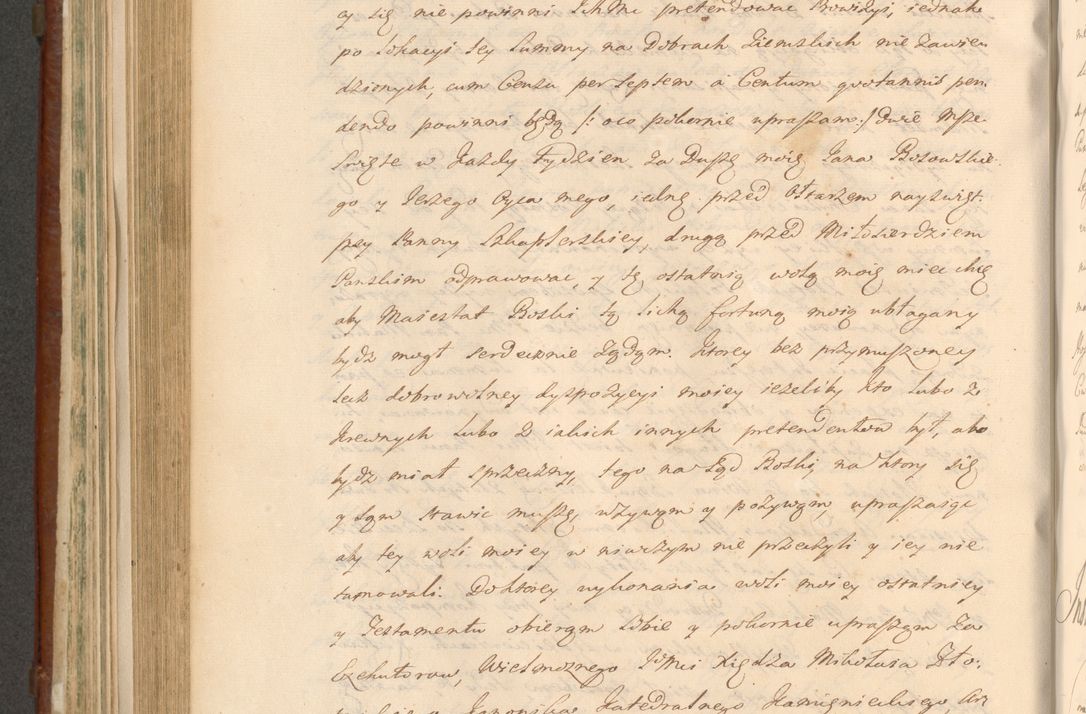 cy się nie powinni Ichmć pretendować Prowizyi, iednak
po lokacyi tey Summy na Dobrach Ziemskich nie zawie
dzionych, cum Censu per septem a Centum quotannis pen
dendo powinni będą /: oco pokornie upraszam :/ dwie Msze
Swięte w Kazdy Tydzien za Duszę moię Jana Bosowskie
go y Jerzego Oyca mego, iednę przed Ołtarzem nayswięt
szey Panny Szkaplerskiey, drugą przed Miłosierdziem
Panskim odprawować, y tę ostatnią wolą moię mieć chcę
aby Maiestat Boski tą lichą fortuną moią ubłagany
bydz mogł serdecznie Ządam. Ktorey bez przymuszoney
lecz dobrowolney dyspozycyi moiey iezeliby kto lubo z
Krewnych lubo z iakich innych pretendentow był, abo
bydz miał sprzeczny, tego na Sąd Boski, na ktory się
y sam stawic muszę, wzywam y pozywam, upraszaiąc
aby tey woli moiey w niwczym nie przeczyli y iey nie
tamowali. Do ktorey wykonania woli moiey ostatniey
y Testamentu obieram sobie y pokornie upraszam za
Exekutorow, Wielmoznego Jmci Xiędza Mikołaia Zło-
Kanonika Katedralnego Kamienieckiego, Ar